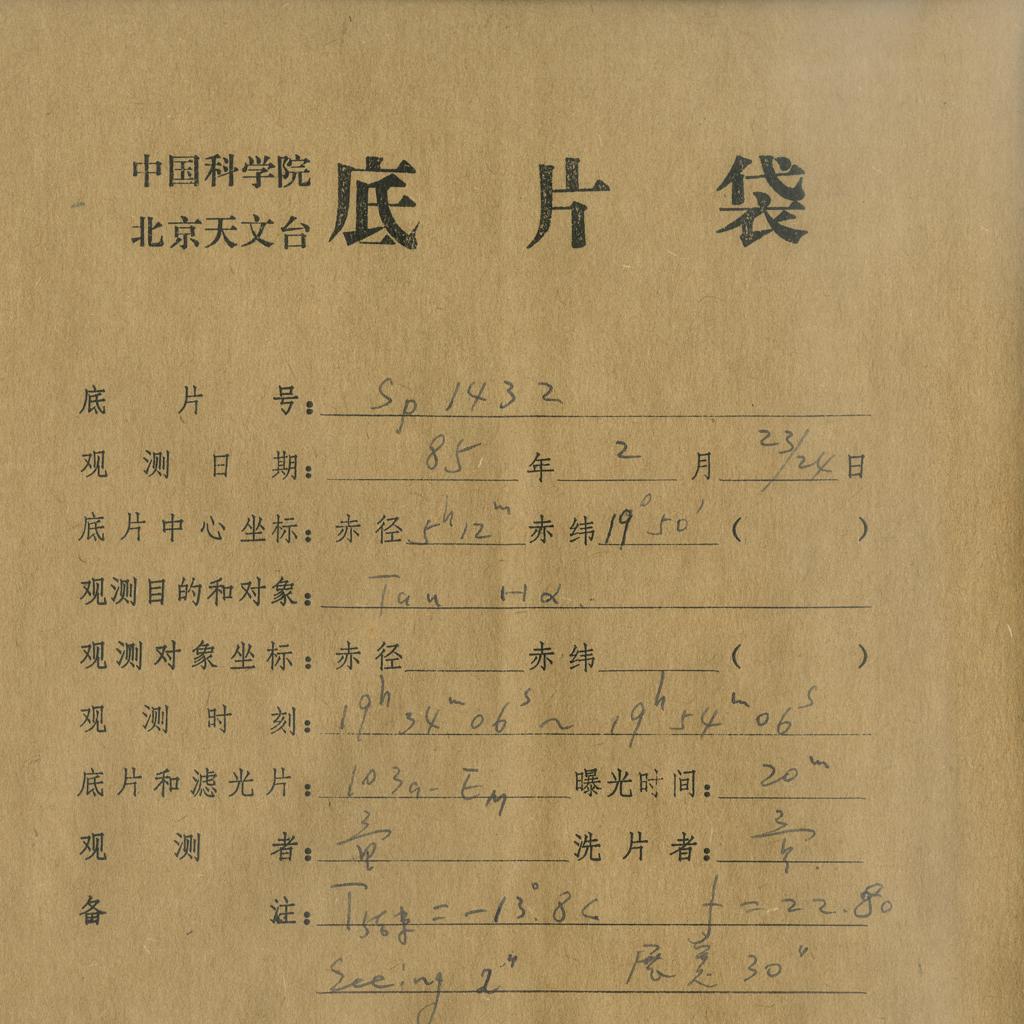 中国科学院
北京天文台
底片袋
底片号: Sp 1432
观测日期: 85 年 2 月 23/24 日
底片中心坐标: 赤径 5h12m 赤纬 19°50′ ( )
观测目的和对象: Tau Hα
观测对象坐标: 赤径 赤纬 ( )
观测时刻: 19h34m06s ~ 19h54m06s
底片和滤光片: 103a-EM 曝光时间: 20m
观测者: 洗片者:
备注: T结束 = -13°.8C f = 22.80
Seeing 2″ 展宽 30″